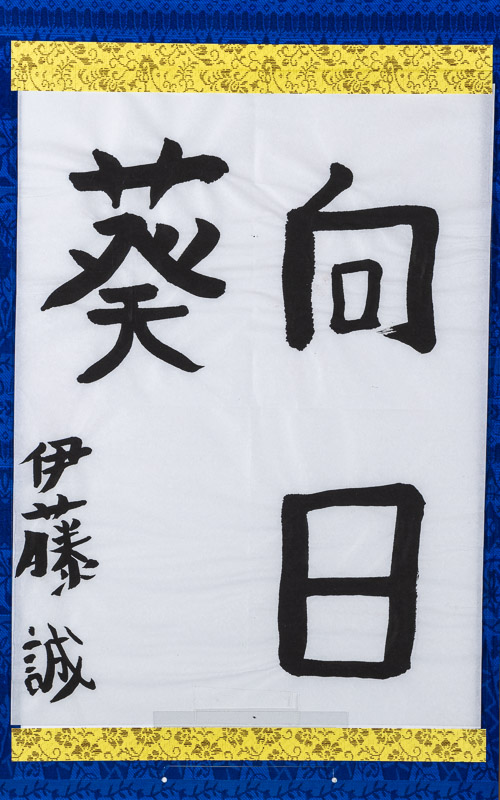 向日
葵
伊藤誠